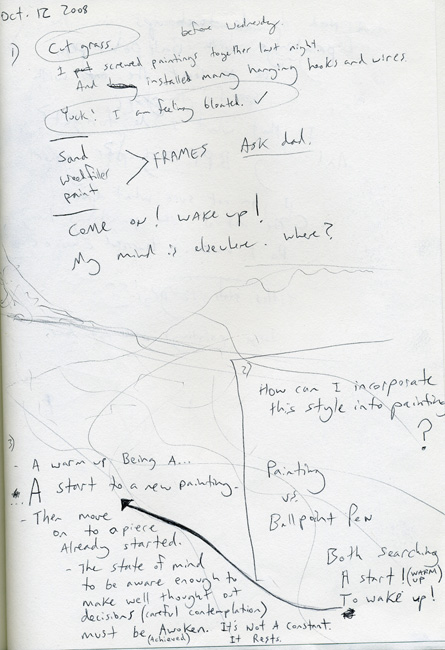 Oct. 12 2008
before Wednesday.
1) Cut grass.
I put screwed paintings together last night.
And installed many hanging hooks and wires.
Yuck! I am feeling bloated. ✓
Sand
Woodfiller
paint
> FRAMES Ask dad.
COME ON! WAKE UP!
My mind is elsewhere. Where?
2)
How can I incorporate
this style into painting
?
Painting
vs.
Ballpoint Pen
Both searching
A start! (WARM UP)
To wake up!
3)
- A warm up Being A...
* ...A start to a new painting.
- Then move
on to a piece
Already started.
- The state of mind
to be aware enough to
make well thought out
decisions (careful contemplation)
must be Awoken. It's Not A Constant.
(Achieved) It Rests.